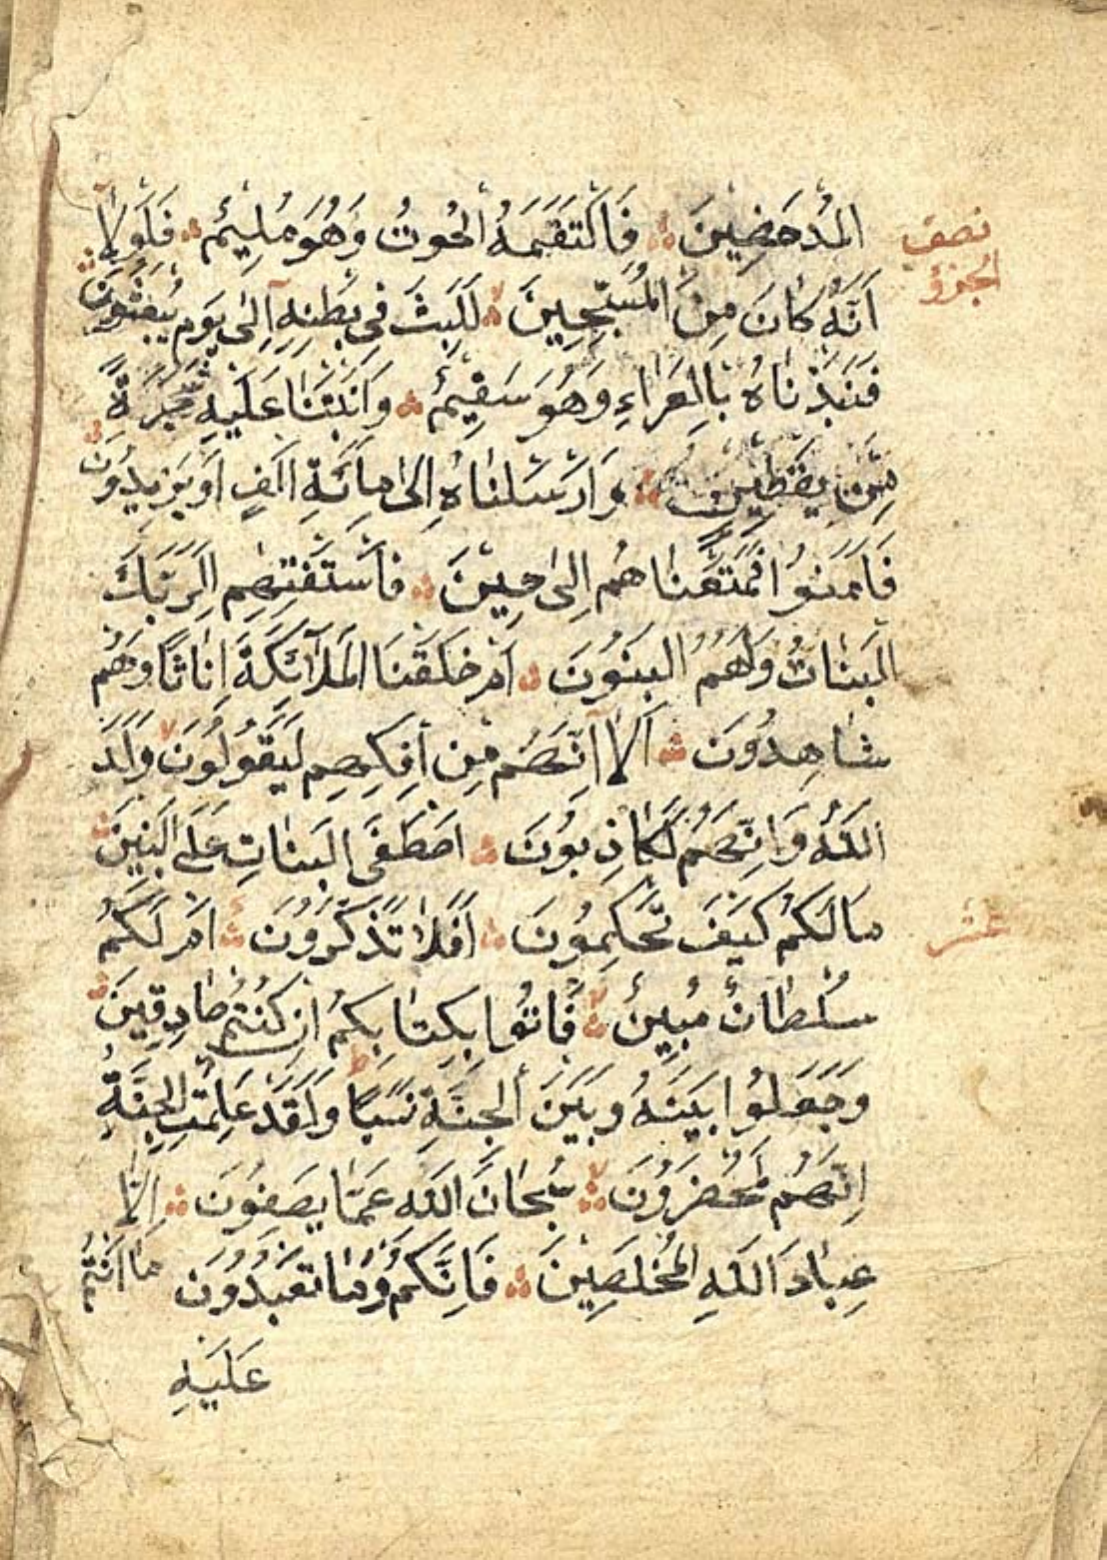 المُدْحَضِينَ ۞ فَالْتَقَمَهُ الْحُوتُ وَهُوَ مُلِيمٌ ۞ فَلَوْلَا
نصف
أَنَّهُ كَانَ مِنَ الْمُسَبِّحِينَ ۞ لَلَبِثَ فِى بَطْنِهِ إِلَى يَوْمِ يُبْعَثُونَ ۞
الجزؤ
فَنَبَذْنَاهُ بِالْعَرَاءِ وَهُوَ سَقِيمٌ ۞ وَأَنْبَتْنَا عَلَيْهِ شَجَرَةً
مِنْ يَقْطِينٍ ۞ وَأَرْسَلْنَاهُ إِلَى مِائَةِ أَلْفٍ أَوْ يَزِيدُونَ ۞
فَآمَنُوا فَمَتَّعْنَاهُمْ إِلَى حِينٍ ۞ فَاسْتَفْتِهِمْ أَلِرَبِّكَ
الْبَنَاتُ وَلَهُمُ الْبَنُونَ ۞ أَمْ خَلَقْنَا الْمَلَائِكَةَ إِنَاثًا وَهُمْ
شَاهِدُونَ ۞ أَلَا إِنَّهُمْ مِنْ إِفْكِهِمْ لَيَقُولُونَ ۙ وَلَدَ
اللَّهُ وَإِنَّهُمْ لَكَاذِبُونَ ۞ اصْطَفَى الْبَنَاتِ عَلَى الْبَنِينَ ۞
مَا لَكُمْ كَيْفَ تَحْكُمُونَ ۞ أَفَلَا تَذَكَّرُونَ ۞ أَمْ لَكُمْ
عشر
سُلْطَانٌ مُبِينٌ ۞ فَأْتُوا بِكِتَابِكُمْ إِنْ كُنْتُمْ صَادِقِينَ ۞
وَجَعَلُوا بَيْنَهُ وَبَيْنَ الْجِنَّةِ نَسَبًا ۖ وَلَقَدْ عَلِمَتِ الْجِنَّةُ
إِنَّهُمْ لَمُحْضَرُونَ ۞ سُبْحَانَ اللَّهِ عَمَّا يَصِفُونَ ۞ إِلَّا
عِبَادَ اللَّهِ الْمُخْلَصِينَ ۞ فَإِنَّكُمْ وَمَا تَعْبُدُونَ مَا أَنْتُمْ
عَلَيْهِ